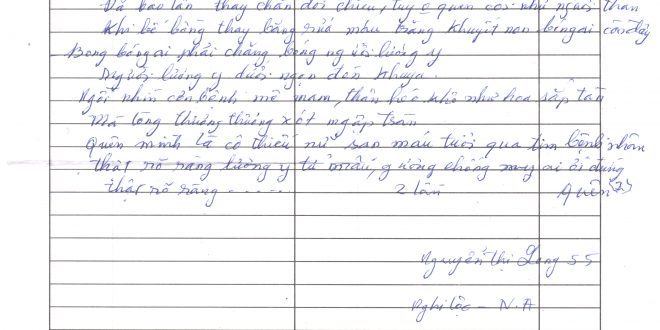 Đã bao lần thay chăn đổi chiếu, tuy quen coi như người thân
Khi bế bồng thay băng rửa máu trăng khuyết non bóng ai còn đây
Bong bóng ai phải chăng bóng người lương y
Người lương y dưới ngọn đèn khuya.
Ngồi nhìn cơn bệnh mê man, thân héo khô như hoa sắp tàn
Mà lòng thương thương xót ngập tràn
Quên mình là cô thiếu nữ sao máu tươi qua tim bệnh nhân
thật rõ ràng lương y từ mẫu, gương chồng may ai ơi đừng
thật rõ ràng ..... 2 lần Quên (?)
Nguyễn Thị Long 55
Nghi Lộc - N.A